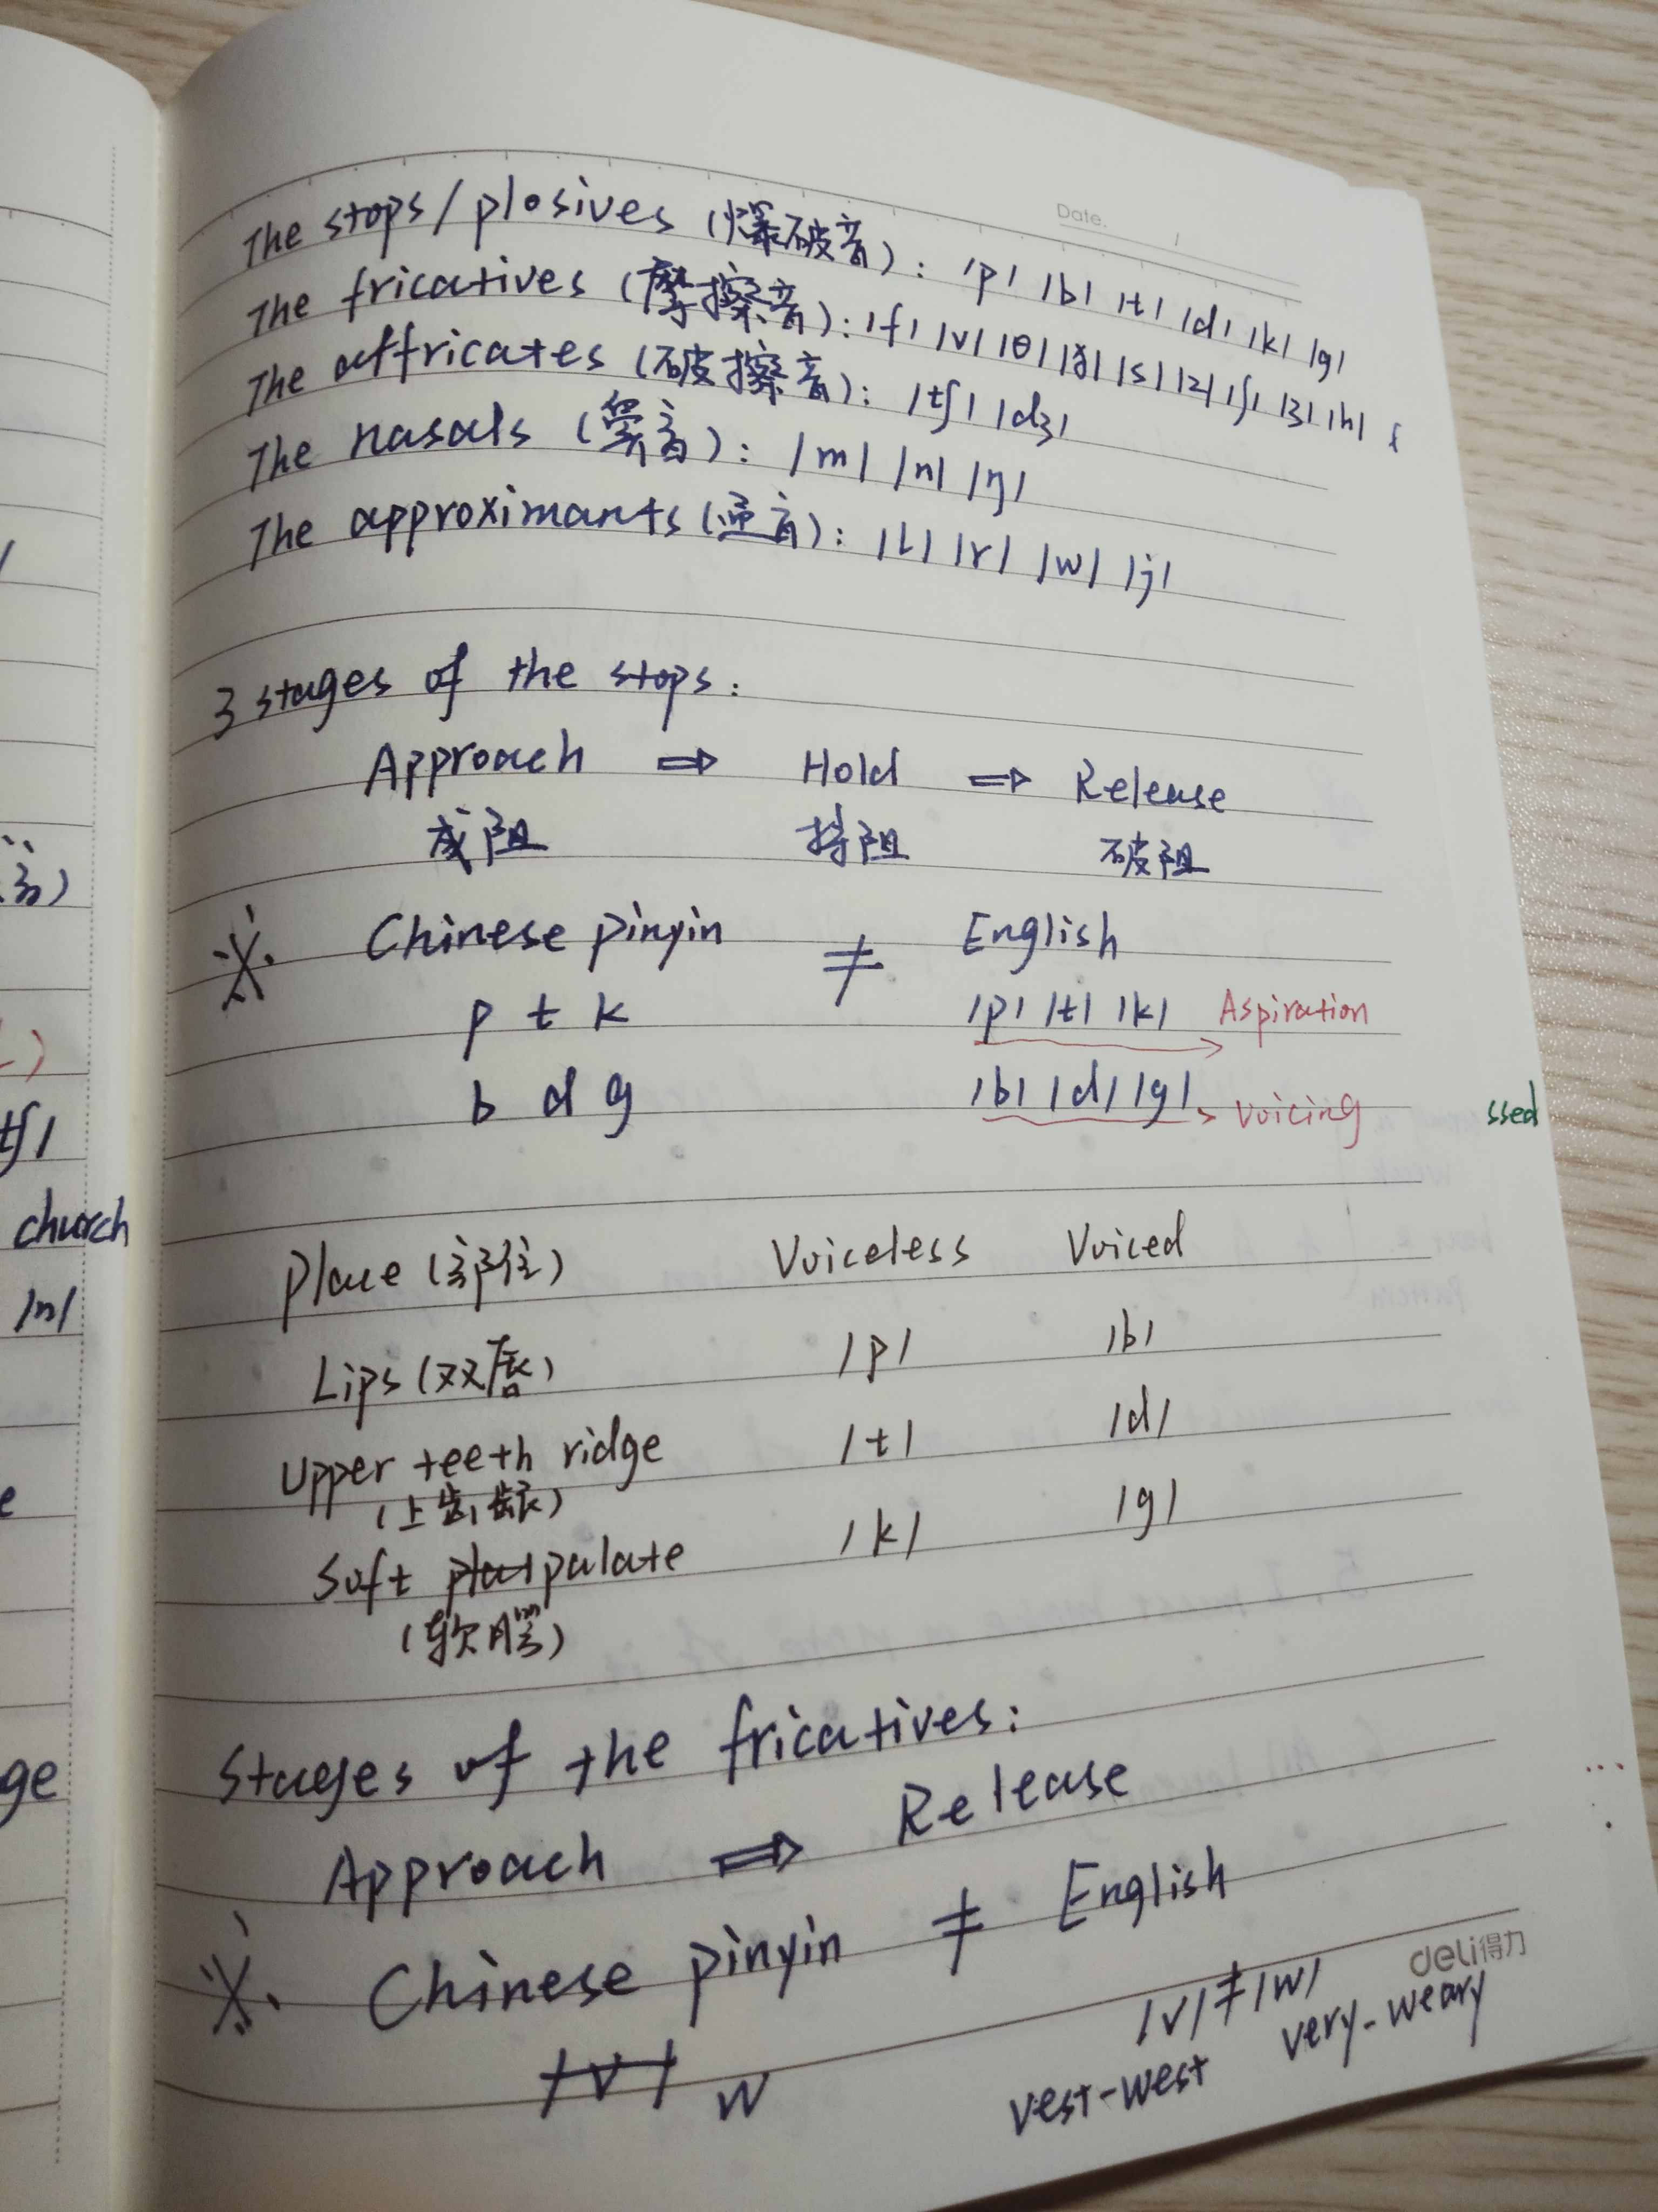 Date.
The stops/plosives (爆破音): /p/ /b/ /t/ /d/ /k/ /g/
The fricatives (摩擦音): /f/ /v/ /θ/ /ð/ /s/ /z/ /ʃ/ /ʒ/ /h/
The affricates (破擦音): /tʃ/ /dʒ/
The nasals (鼻音): /m/ /n/ /ŋ/
The approximants (通音): /l/ /r/ /w/ /j/
3 stages of the stops:
Approach ⇒ Hold ⇒ Release
成阻 持阻 破阻
※. Chinese pinyin ≠ English
p t k /p/ /t/ /k/ → Aspiration
b d g /b/ /d/ /g/ → voicing
Place (部位) Voiceless Voiced
Lips (双唇) /p/ /b/
Upper teeth ridge /t/ /d/
(上齿龈)
Soft palate /k/ /g/
(软腭)
Stages of the fricatives:
Approach ⇒ Release
※. Chinese pinyin ≠ English
/v/ w
/v/ ≠ /w/
vest-west very-weary
deli得力
/tʃ/
church
/n/
ge
ssed